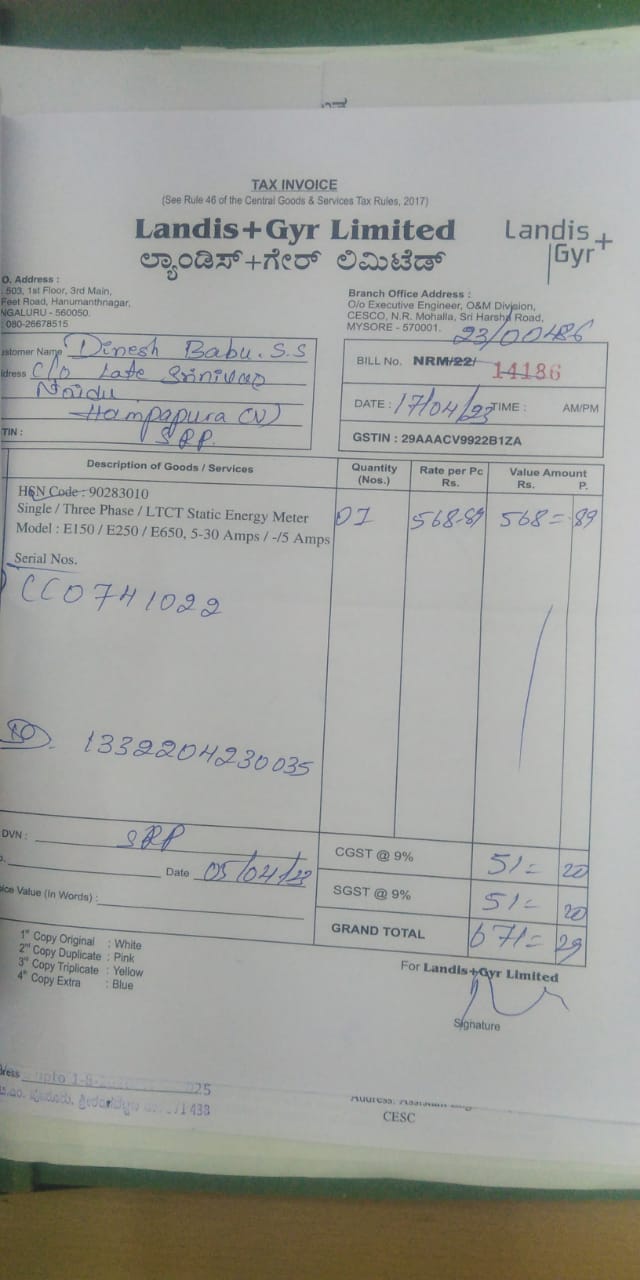 TAX INVOICE
(See Rule 46 of the Central Goods & Services Tax Rules, 2017)
Landis+Gyr Limited
ಲ್ಯಾಂಡಿಸ್+ಗೇರ್ ಲಿಮಿಟೆಡ್
Landis+
Gyr
O. Address :
503, 1st Floor, 3rd Main,
Feet Road, Hanumanthnagar,
NGALURU - 560050.
: 080-26678515
Branch Office Address :
O/o Executive Engineer, O&M Division,
CESCO, N.R. Mohalla, Sri Harsha Road,
MYSORE - 570001.
23/00486
ustomer Name Dinesh Babu. S.S
dress C/o Late
Naidu
Hampapura (V)
TIN : SRP.
BILL No. NRM/22/ 14186
DATE : 17/04/23 TIME : AM/PM
GSTIN : 29AAACV9922B1ZA
Description of Goods / Services Quantity (Nos.) Rate per Pc Rs. Value Amount Rs. P.
HSN Code : 90283010
Single / Three Phase / LTCT Static Energy Meter 01 568-89 568= 89
Model : E150 / E250 / E650, 5-30 Amps / -/5 Amps
Serial Nos.
CC0741022
1332204230035
DVN : SRP
Date 05/04/23
ice Value (In Words) :
CGST @ 9% 51= 20
SGST @ 9% 51= 20
GRAND TOTAL 671= 29
1st Copy Original : White
2nd Copy Duplicate : Pink
3rd Copy Triplicate : Yellow
4th Copy Extra : Blue
For Landis+Gyr Limited
Signature
CESC